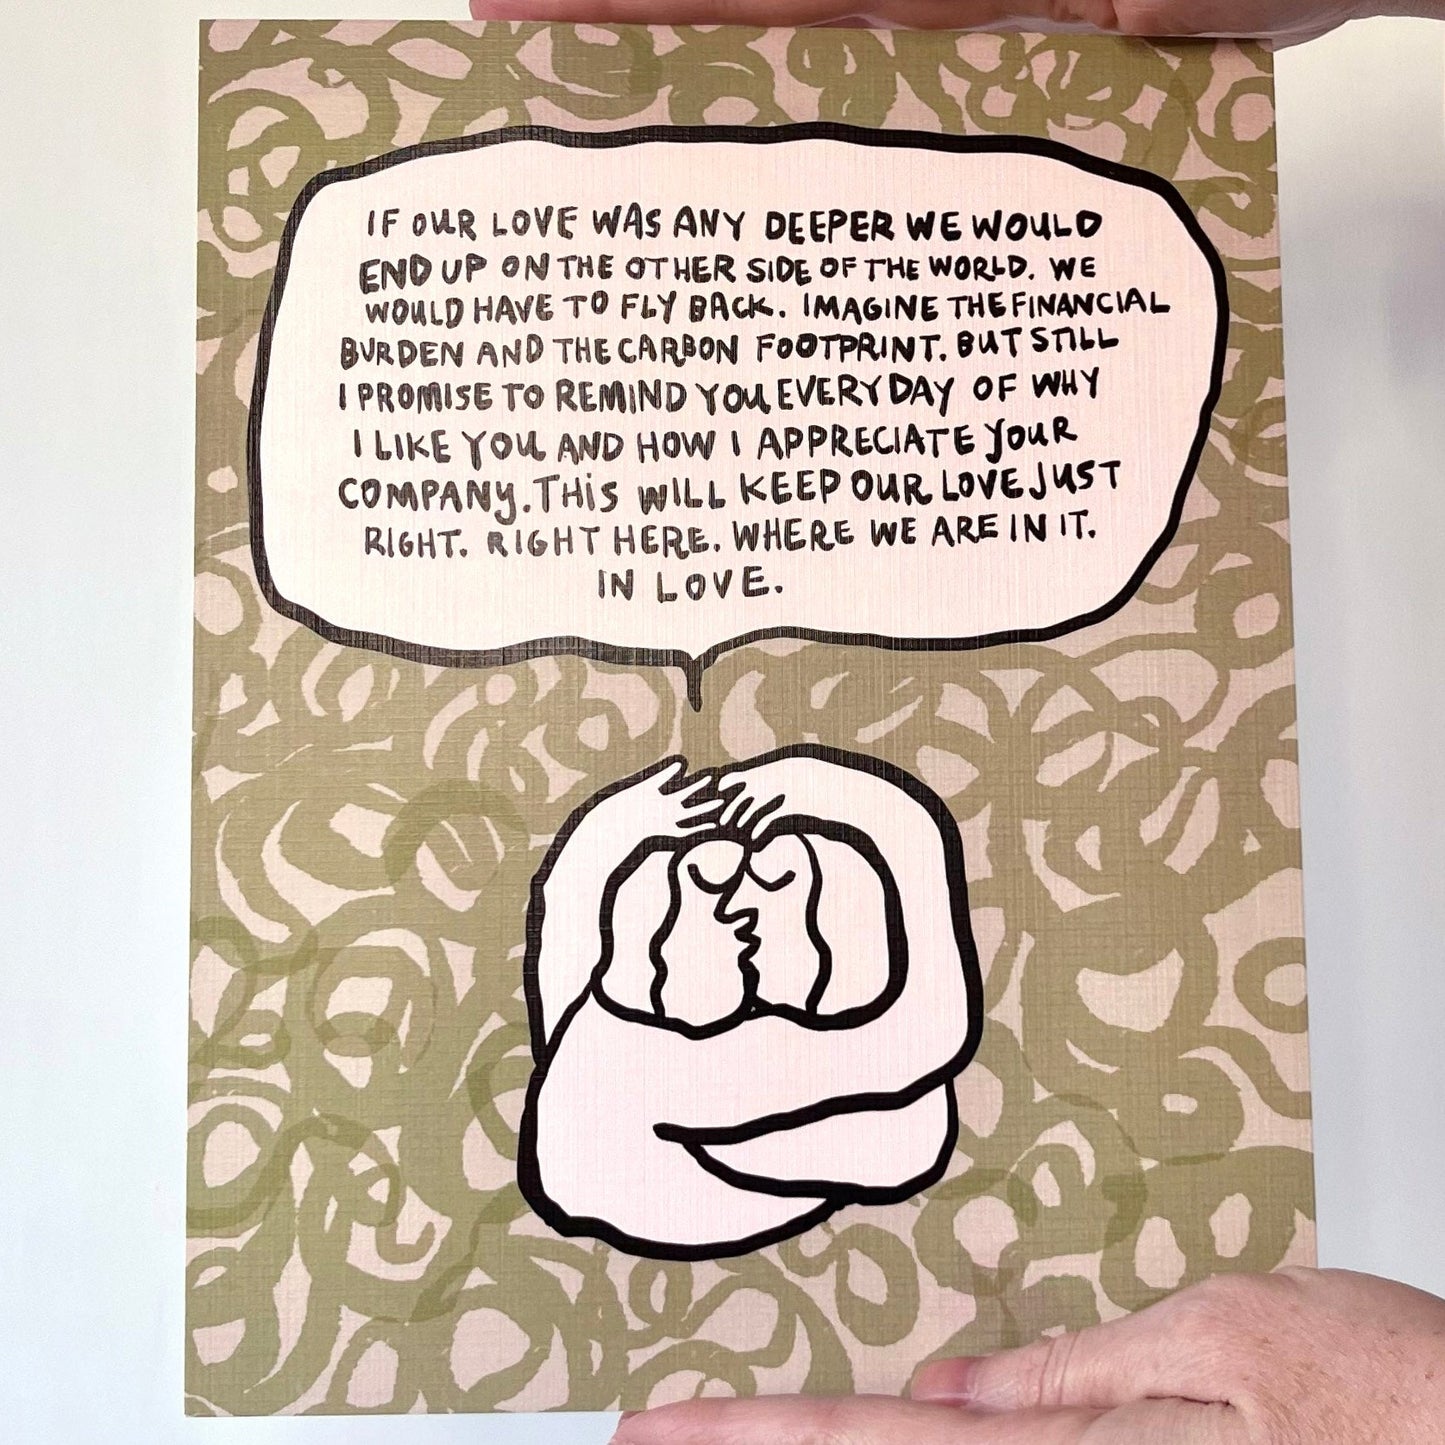 IF OUR LOVE WAS ANY DEEPER WE WOULD
END UP ON THE OTHER SIDE OF THE WORLD. WE
WOULD HAVE TO FLY BACK. IMAGINE THE FINANCIAL
BURDEN AND THE CARBON FOOTPRINT. BUT STILL
I PROMISE TO REMIND YOU EVERY DAY OF WHY
I LIKE YOU AND HOW I APPRECIATE YOUR
COMPANY. THIS WILL KEEP OUR LOVE JUST
RIGHT. RIGHT HERE. WHERE WE ARE IN IT.
IN LOVE.